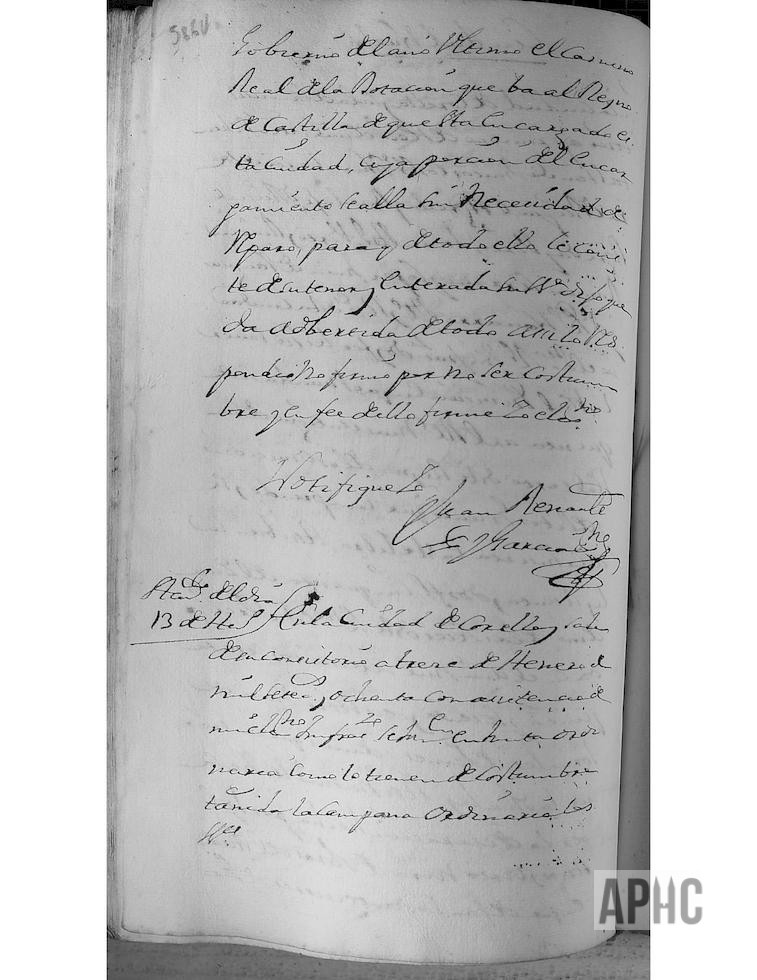 Gobierno del año Ultimo el Camino
Real de la Dotacion que ba al Reyno
de Castilla de que esta encargada es
ta Ciudad, cuya porcion del encar
gamiento se alla sin Necesidad de
Reparo, para q de todo ello le conste
te de su tenor, y enterada su Sª dijo que
da adbertida de todo assi lo Res
pondio No firmo por no ser Costum
bre y en fee de ello firme Yo el
Notifiquelo
Juan
Garcia
del dia
13 de Hen.º
En la Ciudad de Corella, y sala
de su Consistorio a trece de Henero de
mil setec.s y ochenta con assistencia de
mi el infrac.to en Junta Ordi
naria como lo tienen de Costumbre
tañida la Campana Ordinaria los
S.res
APHC